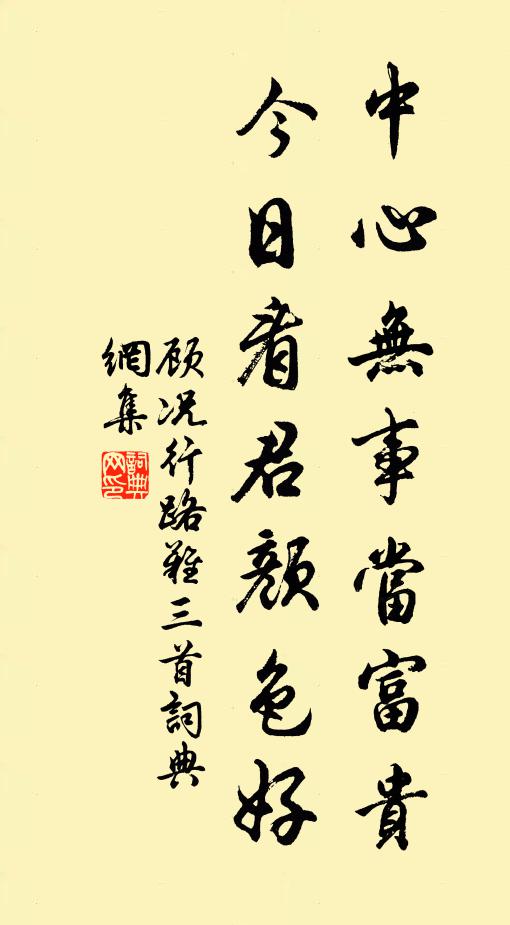 中心無事當富貴
今日看君顏色好
顾况行路難三首詞典
網集
詞典網印